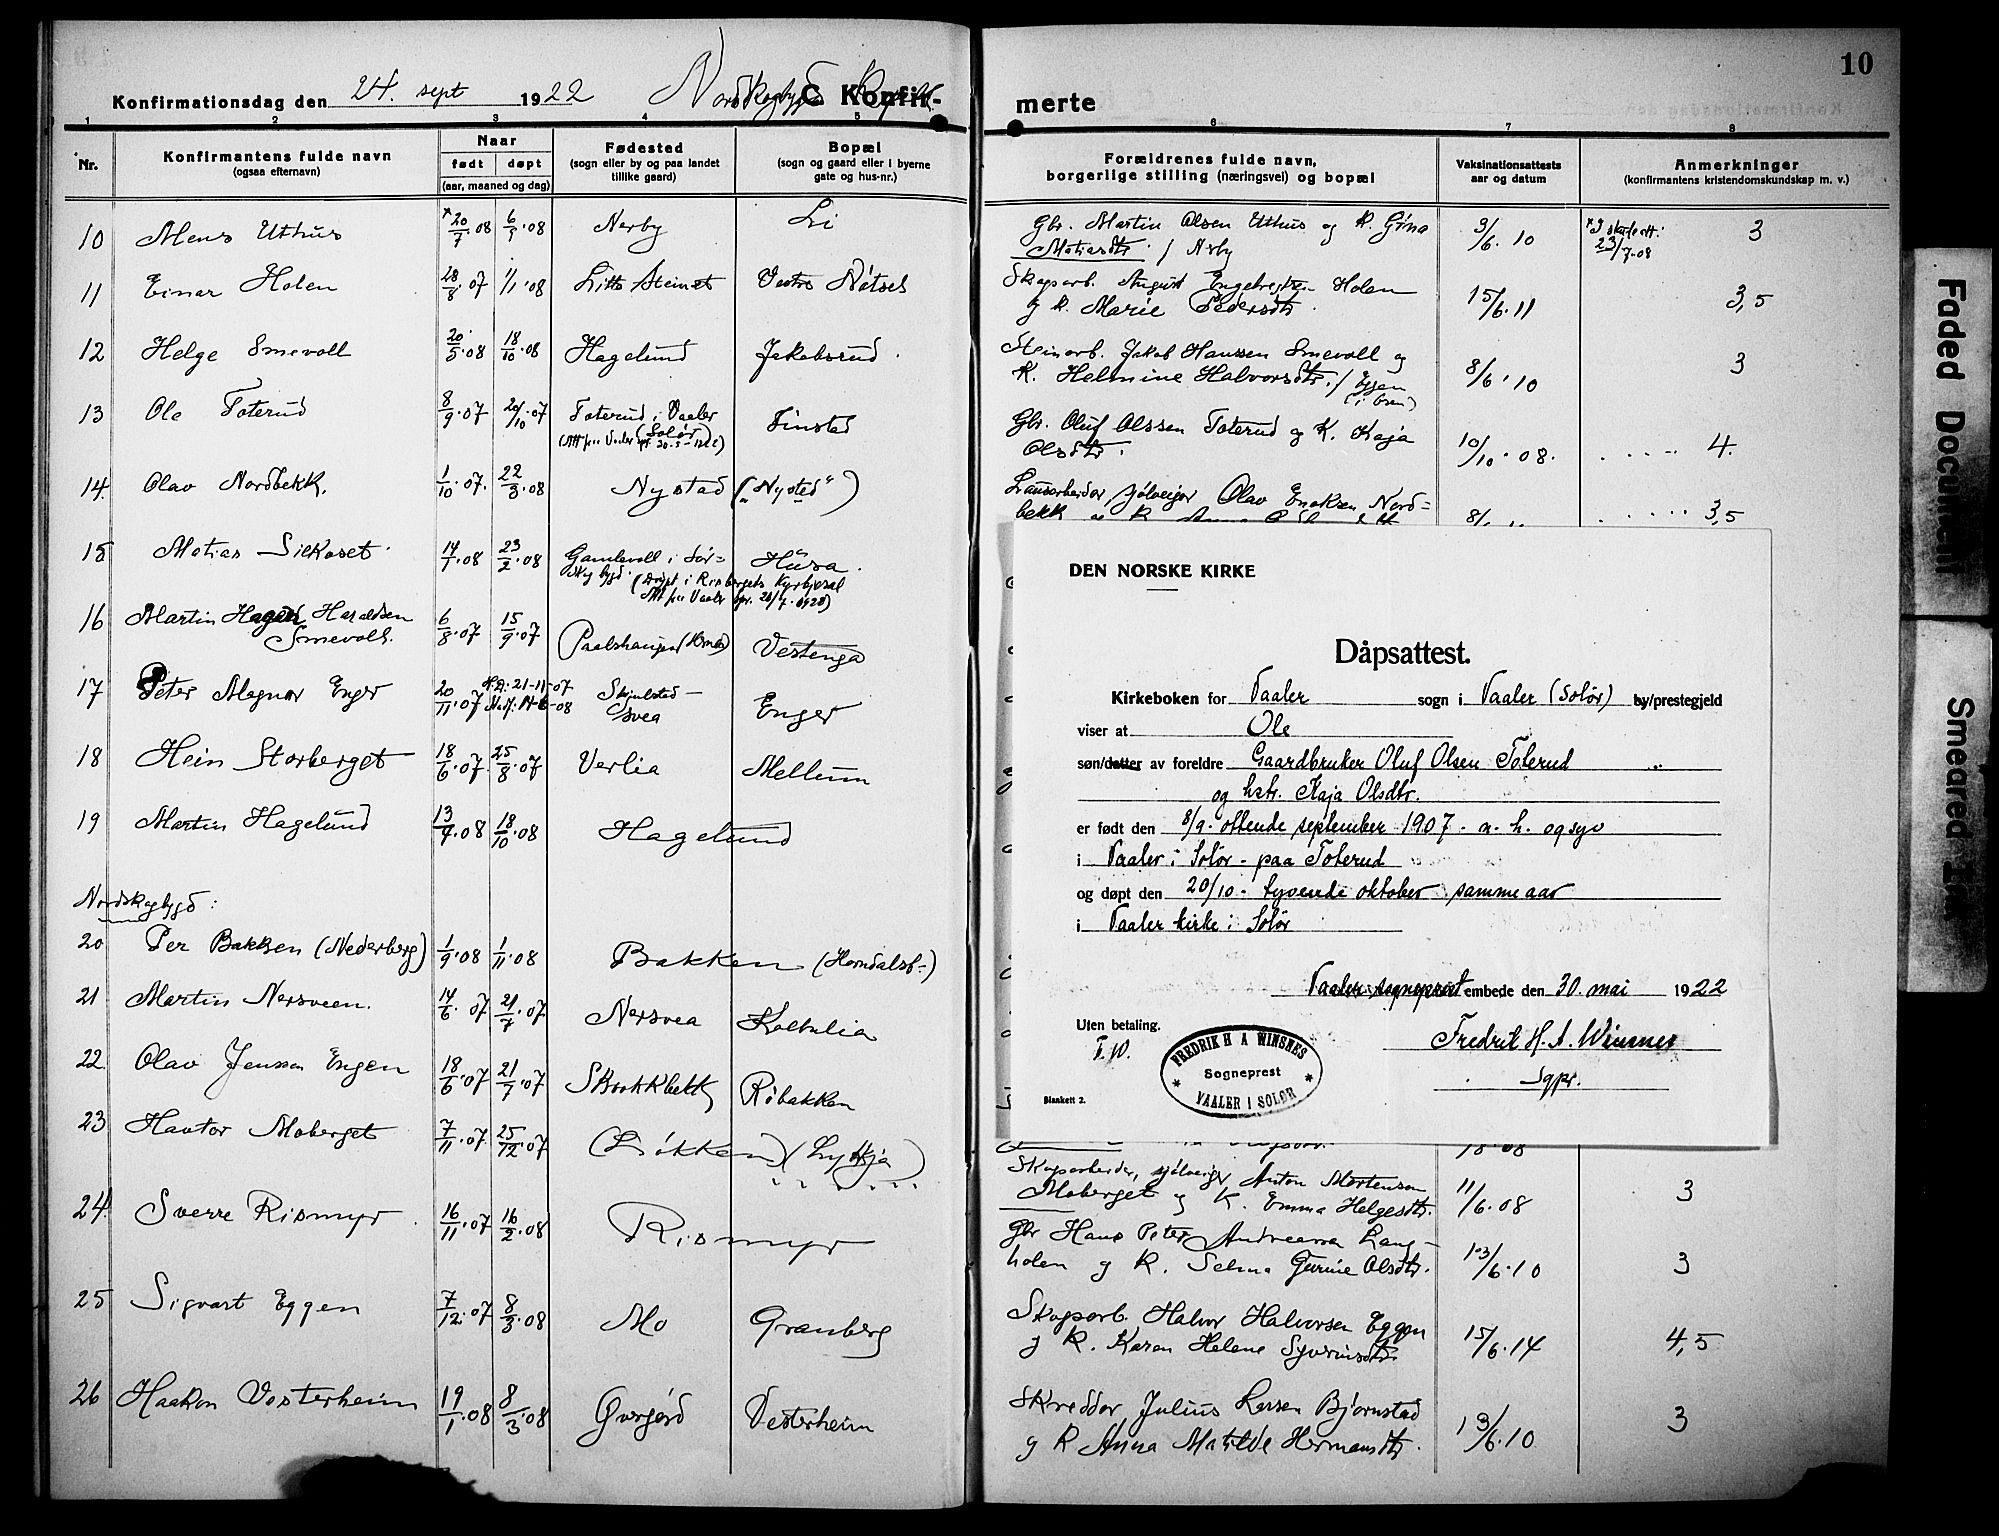 Konfirmationsdag den 24. sept 1922 Nordskogbygd C Konfir-
1 2 3 4 5
Nr. Konfirmantens fulde navn (ogsaa efternavn) Naar født døpt (aar, maaned og dag) Fødested (sogn eller by og paa landet tillike gaard) Bopæl (sogn og gaard eller i byerne gate og hus-nr.)
10 Mens Uthus 20/7 08 6/9 08 Nerby Li
11 Einar Holen 28/8 07 1/1 08 Vestre Nötsel
12 Helge Smevoll 20/5 08 18/10 08 Hagelund Jakobsrud.
13 Ole Toterud 8/9 07 20/10 07 Toterud i Vaaler (Solør) Finstad
14. Olav Nordbekk. 1/10 07. 22/3 08 Nystad („Nysted“)
15 Matias Silkoset 14/1 08 23/2 08 Gamlevoll i Sør-
skogbygd. (Døpt i Risbergets
16 Martin Hagen Haraldsen
Smevoll. 6/8 07 15/9 07 Vestenga
17 Peter Magnar Enger 20/11 07 H.D: 21-11-07 Skjulstad-
svea Enger
18 Hein Storberget 18/6 07 25/8 07 Verlia Mellum
19 Martin Hagelund 13/7 08 18/10 08 Hagelund
Nordskogbygd:
20 Per Bakken (Nederberg) 1/9 08 1/11 08 Bakken (Horndalsb-)
21 Martin Nersveen. 14/6 07 21/7 07 Nersvea Kolbulia
22 Olav Jensen Engen 18/6 07 21/7 07 Skrokkbekk Røbakken
23 Havtor Moberget 7/11 07 25/12 07 Løkken (Lykkja)
24. Sverre Rismyr 16/11 07 16/2 08 Rismyr
25 Sigvart Eggen 7/12 07 8/3 08 Mo Granberg
26 Haakon Vesterheim 19/1 08 8/3 08 Øvergård Vesterheim
10
merte
6 7 8
Forældrenes fulde navn, borgerlige stilling (næringsvei) og bopæl Vaksinationsattests aar og datum Anmerkninger (konfirmantens kristendomskundskap m. v.)
Gbr. Martin Olsen Uthus og K. Gina 3/6. 10 3
Matiasdtr. / Nerby 23/7-08
Skogsarb. August Engebretsen Holen
og K. Marie Pedersdtr. 15/6. 11 3,5
Steinarb. Jakob Hanssen Smevoll og
K. Helmine Halvorsdtr. / Eggen 8/6. 10 3
Gbr. Oluf Olssen Toterud og K. Kaja
Olsdtr. 10/10. 08. 4.
Olav Enoksen Nord-
bekk 3,5
DEN NORSKE KIRKE
Dåpsattest.
Kirkeboken for Vaaler sogn i Vaaler (Solør) by/prestegjeld
viser at Ole
søn/datter av foreldre Gaardbruker Oluf Olsen Toterud
og hstr. Kaja Olsdtr.
er født den 8/9- ottende september 1907 - n. h. og syv
i Vaaler i Solør - paa Toterud
og døpt den 20/10- tyvende oktober samme aar
i Vaaler kirke i Solør
Vaaler sogneprest embede den 30. mai 1922
Uten betaling.
Fredrik H. A. Winsnes
Sgpr.
FREDRIK H A WINSNES
Sogneprest
VAALER I SOLØR
Blankett 2.
18-08
Skogsarbeider, sjølveiger Anton Mortensen
Moberget og K. Emma Helgesdtr. 11/6. 08 3
Gbr Hans Peter Andreassen Lang-
holen og K. Selma Gurine Olsdtr. 13/6. 10 3
Skogsarb. Halvor Halvorsen Eggen
og K. Karen Helene Syverinsdtr. 15/6. 14 4,5
Skreddor Julius Larsen Bjørnstad
og K Anna Matilde Hermansdtr. 13/6. 10 3
Faded Document
Smeared Ink